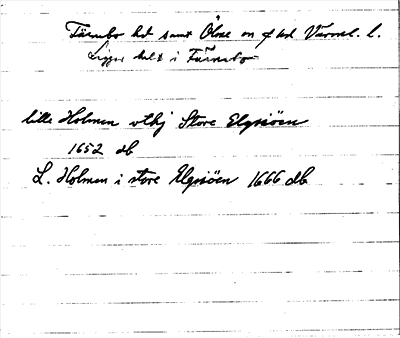 Färnebo hd samt Ölme en f hd Värml. l.
Ligger helt i Färnebo
lille Holmen wthj Store Elgsiöen
1652 db
L. Holmen i store Elgsiöen 1666 db